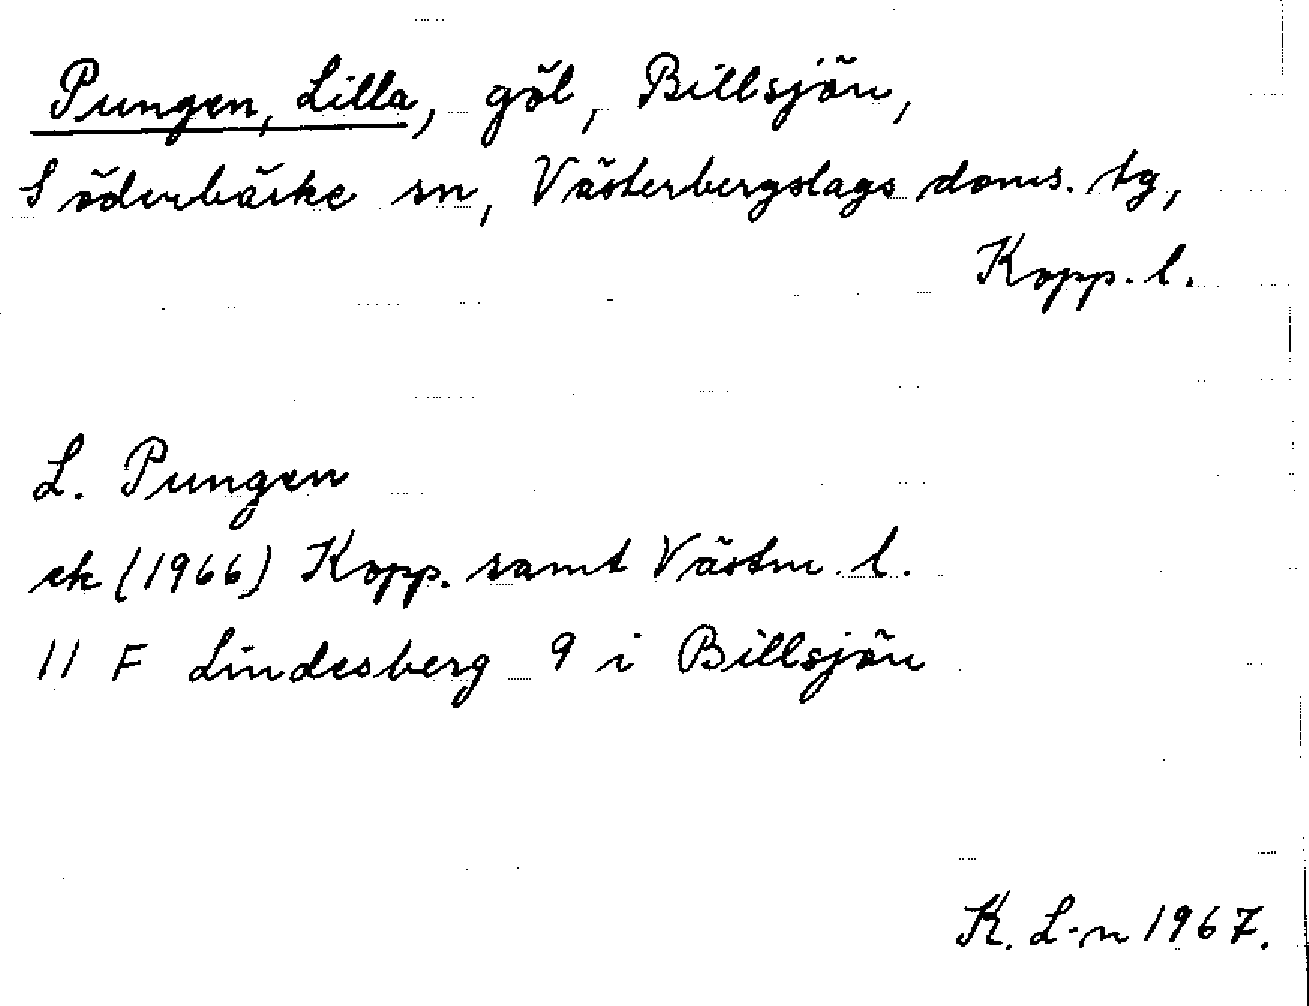 Pungen, Lilla, göl, Billsjön,
Söderbärke sn, Västerbergslags doms. tg,
Kopp. l.
L. Pungen
ek (1966) Kopp. samt Västm. l.
11 F Lindesberg 9 i Billsjön
K. L-n 1967.